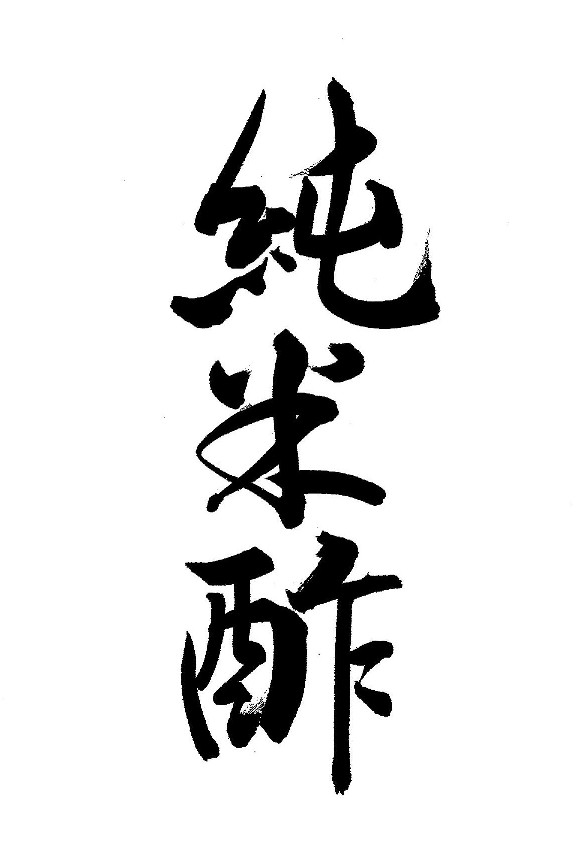 純米酢